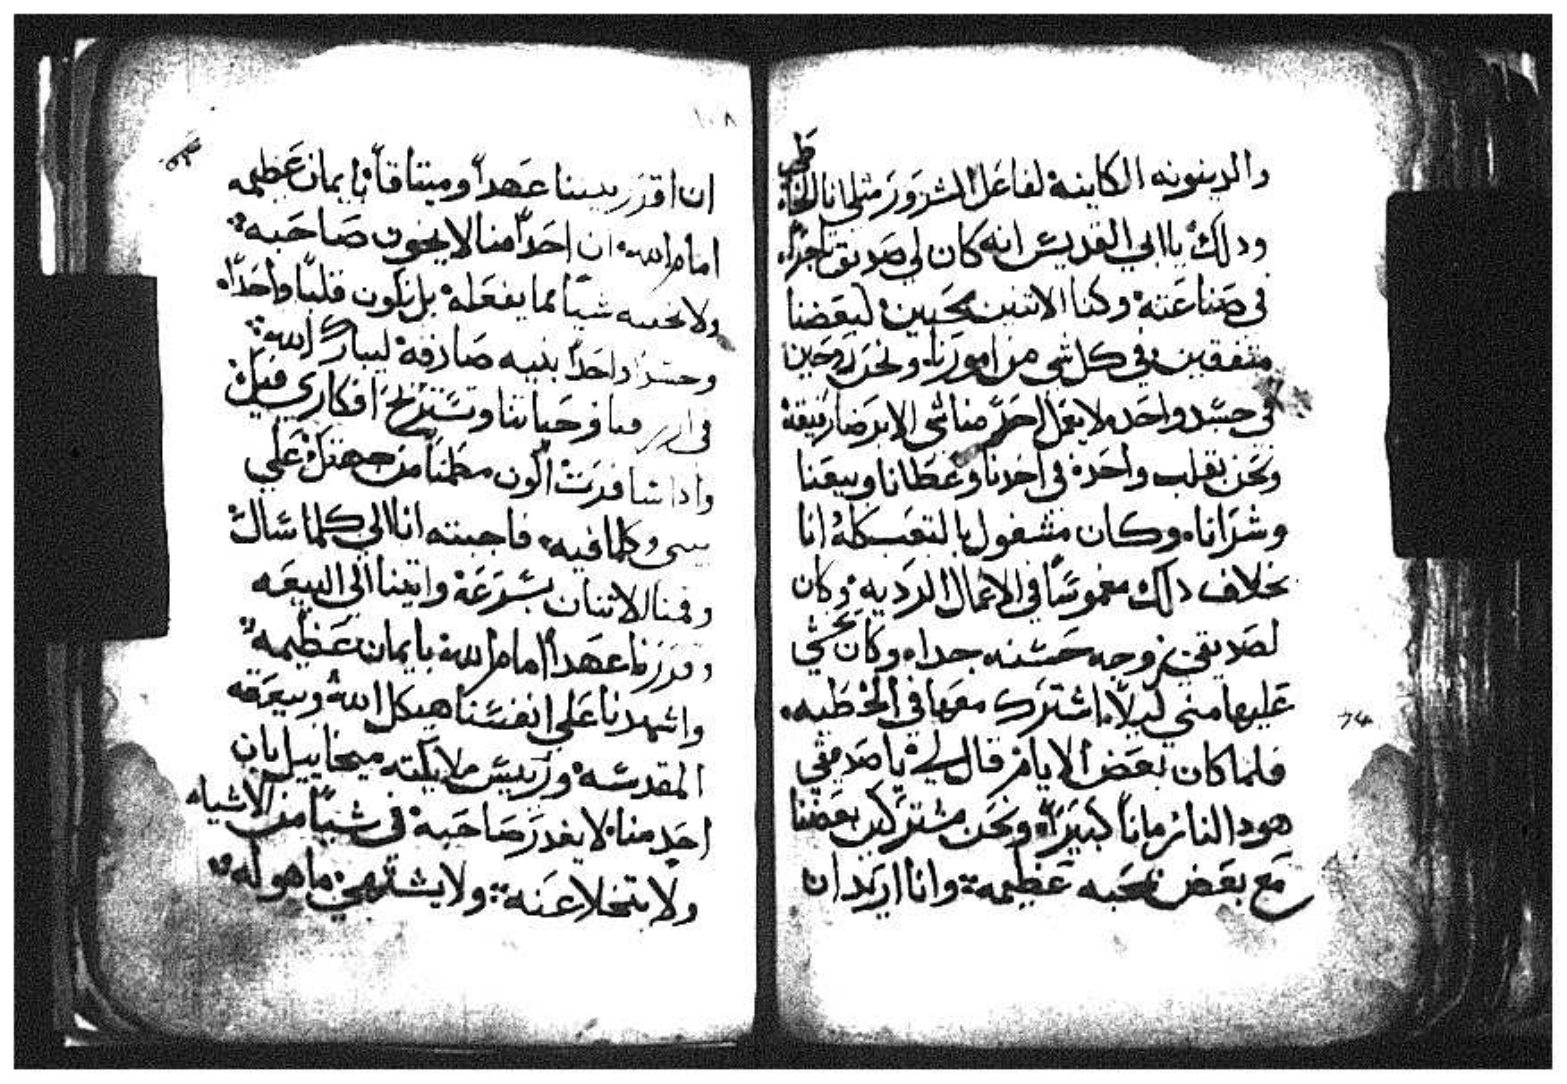 والدينونه الكاينه لفاعل الشرور مثلي انا الخاطي
ودلك يا ابي القديس انه كان لي صديق اخر
في صناعته وكنا الاتنين محبين لبعضنا
متفقين في كل شي من امورنا ونحن روحين
في جسد واحد لا يفعل احد منا شي الا برضا رفيقه
ونحن بقلب واحد في اخدنا وعطانا وبيعنا
وشرانا وكان مشغول بالتعب كله انا
بخلاف دلك مغموسا في الاعمال الرديه وكان
لصديقي زوجه حسنه جدا وكان يخشي
عليها مني ليلا اشترك معها في الخطيه
فلما كان بعض الايام قال لي يا صديقي
هودا لنا زمانا كبيرا ونحن مشتركين بعضنا
مع بعض بمحبه عظيمه وانا اريد ان
١٠٨
ان اقرر بيننا عهدا وميتاقا بايمان عظيمه
امام الله ان احدا منا لا يخون صاحبه
ولا شيا مما يفعله بل نكون قلبا واحدا
وجسدا واحدا بنيه صادقه ليبارك الله
في وحياتنا وتستريح افكاري قبلك
وادا سافرت اكون مطمنا من جهتك علي
بيتي وكلما فيه فاجبته انا الي كلما سال
وقمنا الاتنان بسرعه واتينا الي البيعه
وقررنا عهدا امام الله بايمان عظيمه
واشهدنا علي انفسنا هيكل الله وبيعته
المقدسه وريس ملايكته ميخاييل بان
احد منا لا يغدر صاحبه في شيا من الاشيا
ولا يتخلا عنه ولا يشتهي ما هو له